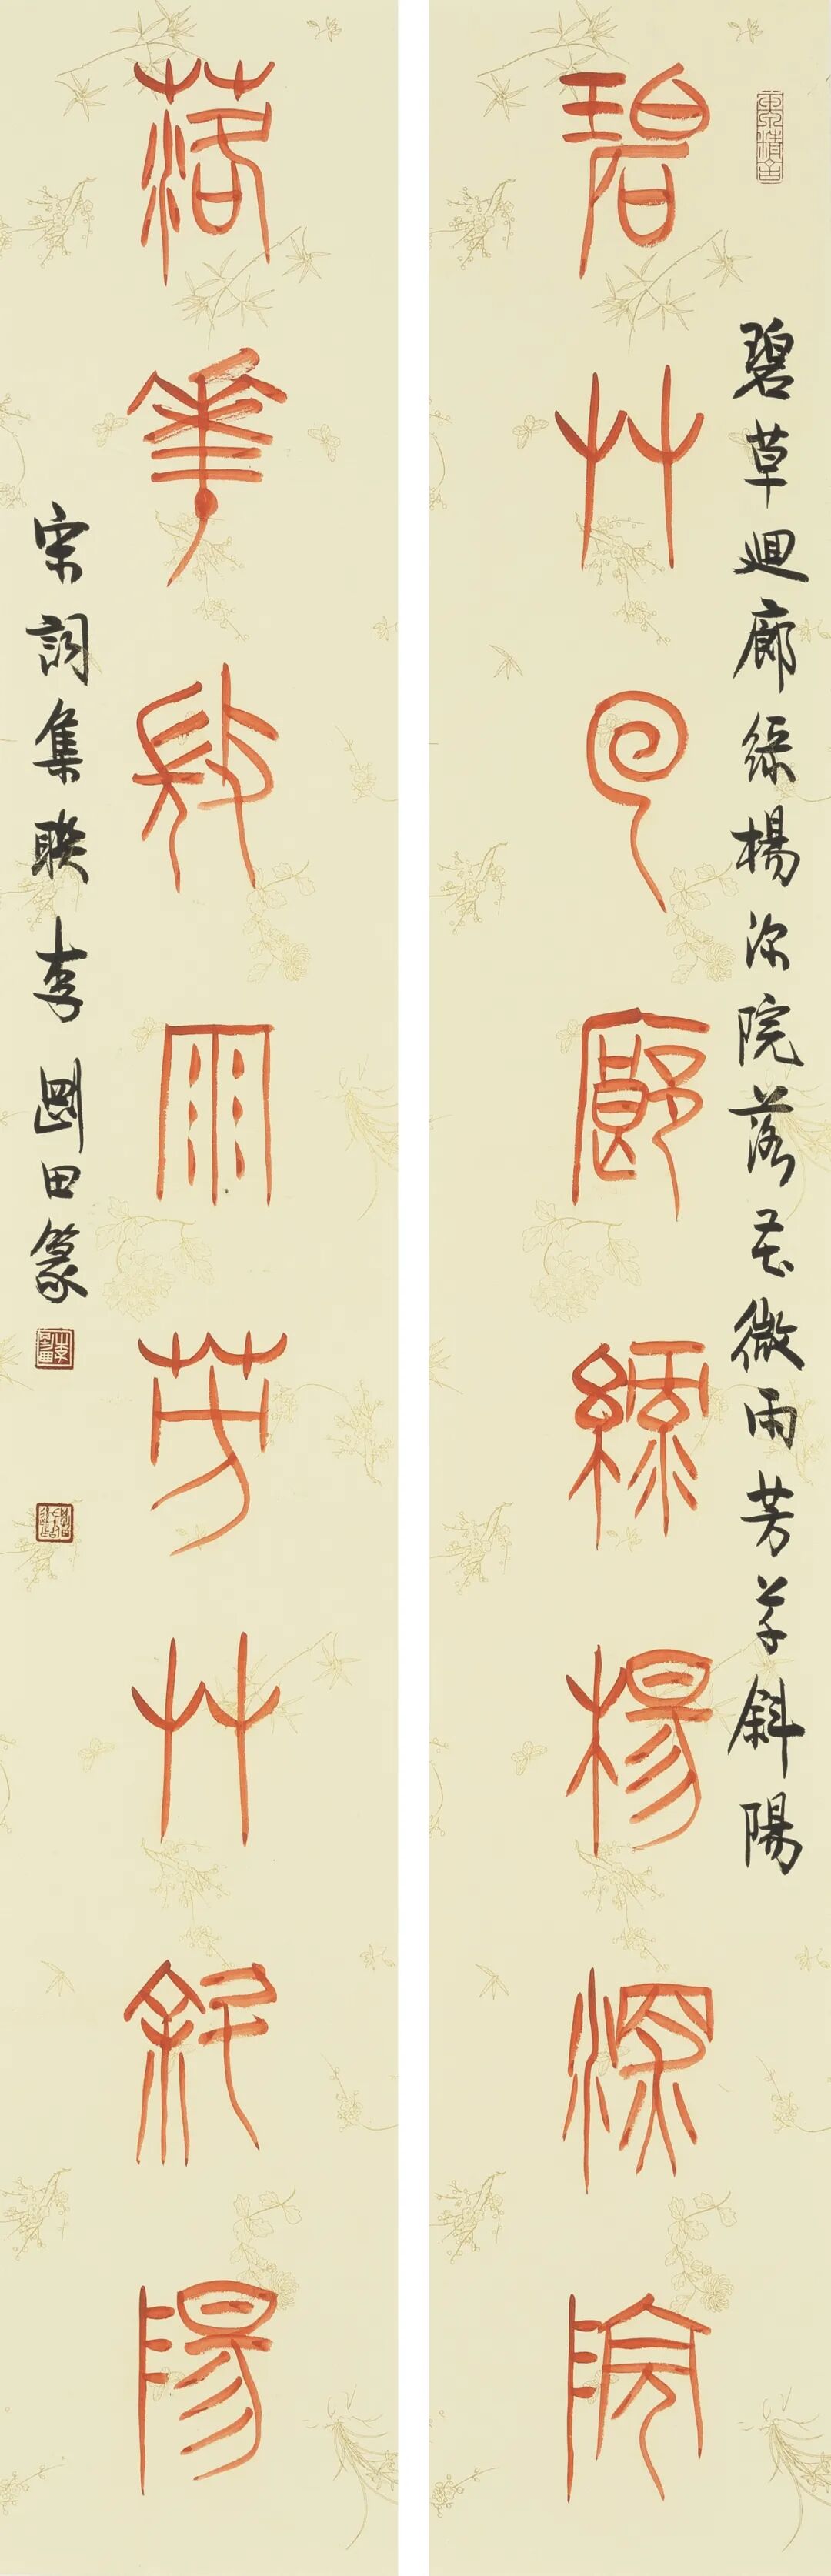 碧艸回廊綠楊深院
碧草迴廊綠楊深院落花微雨芳草斜陽
落華微雨芳艸斜陽
宋詞集聯李剛田篆